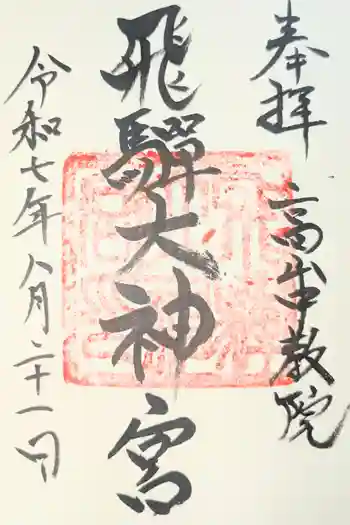 奉拝 高山教院
飛騨大神宮
令和七年八月二十一日